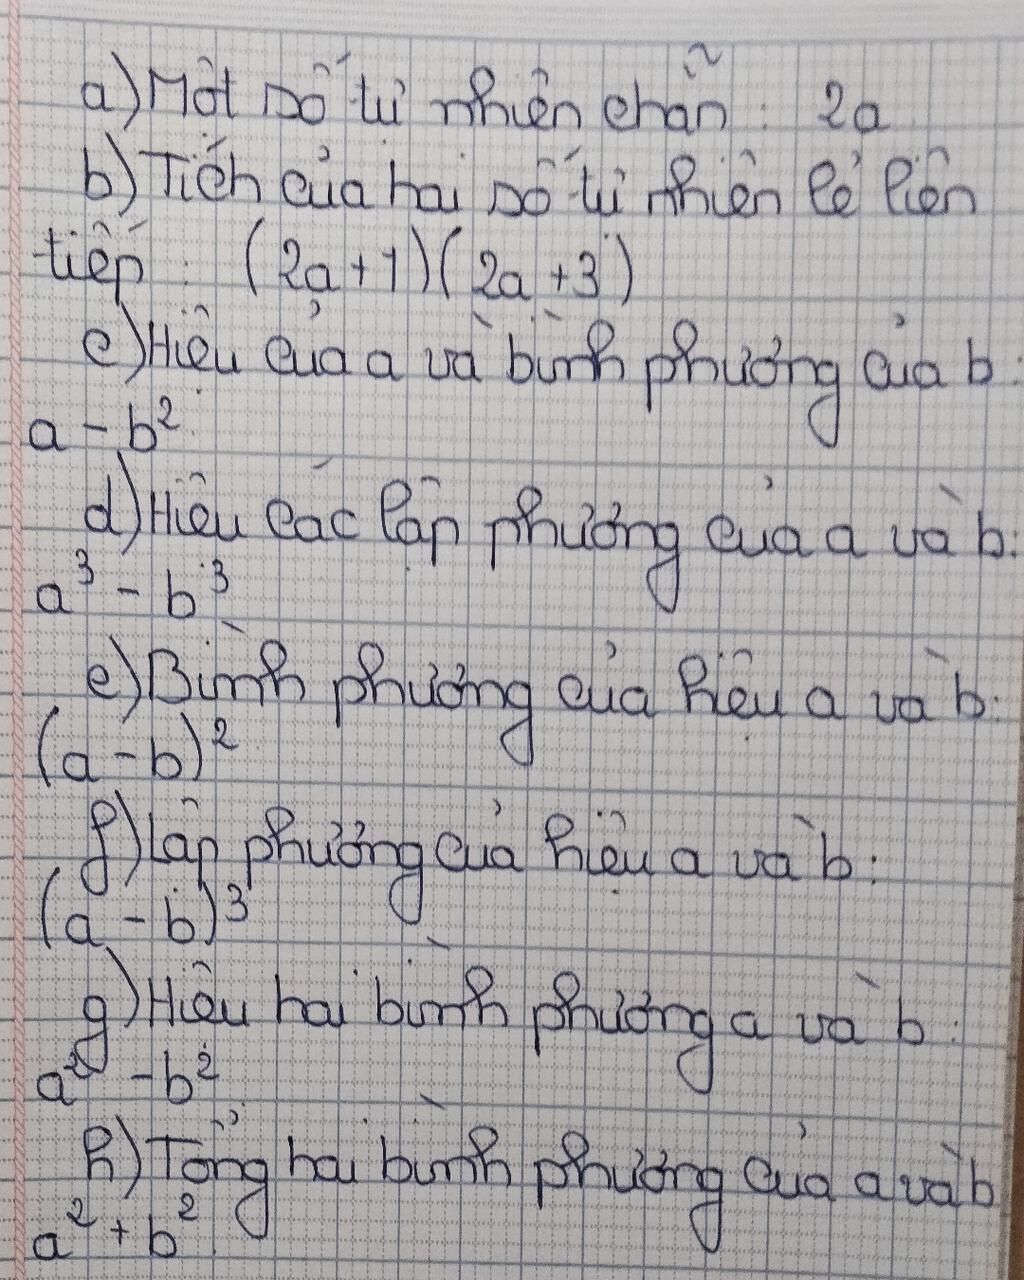 a) Một số tự nhiên chẵn: 2a
b) Tích của hai số tự nhiên lẻ liên
tiếp: (2a+1)(2a+3)
c) Hiệu của a và bình phương của b:
a - b²
d) Hiệu các lập phương của a và b:
a³ - b³
e) Bình phương của hiệu a và b:
(a - b)²
f) Lập phương của hiệu a và b:
(a - b)³
g) Hiệu hai bình phương a và b:
a² - b²
h) Tổng hai bình phương của a và b
a² + b²